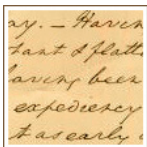 ay. — Havin
tant & flatte
having been
expediency
t as early